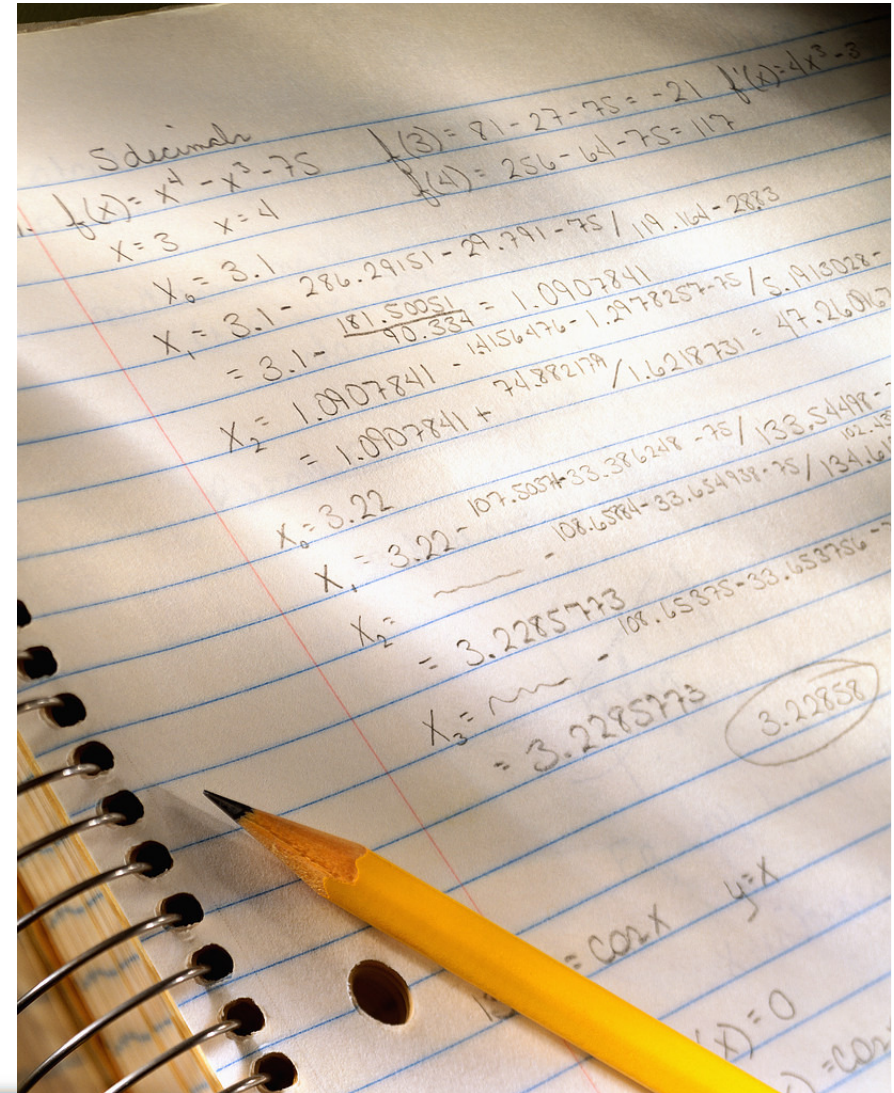 5 decimals
1. f(x) = x⁴ - x³ - 75 f(3) = 81 - 27 - 75 = -21 f'(x) = 4x³ - 3
x = 3 x = 4 f(4) = 256 - 64 - 75 = 117
X₀ = 3.1
X₁ = 3.1 - 286.29151 - 29.791 - 75 / 119.164 - 28.83
= 3.1 - 181.50051/90.334 = 1.0907841
X₂ = 1.0907841 - 1.4156476 - 1.2978257 - 75 / 5.1913028 -
= 1.0907841 + 74.882179 / 1.6218731 = 47.26096
X₀ = 3.22
X₁ = 3.22 - 107.50374 - 33.386248 - 75 / 133.54498 -
X₂ = - 108.65884 - 33.654938 - 75 / 134.61
= 3.2285773
X₃ = - 108.65375 - 33.653756 -
= 3.2285773 3.22858
= cosx y = x
(x) = 0
) = cos